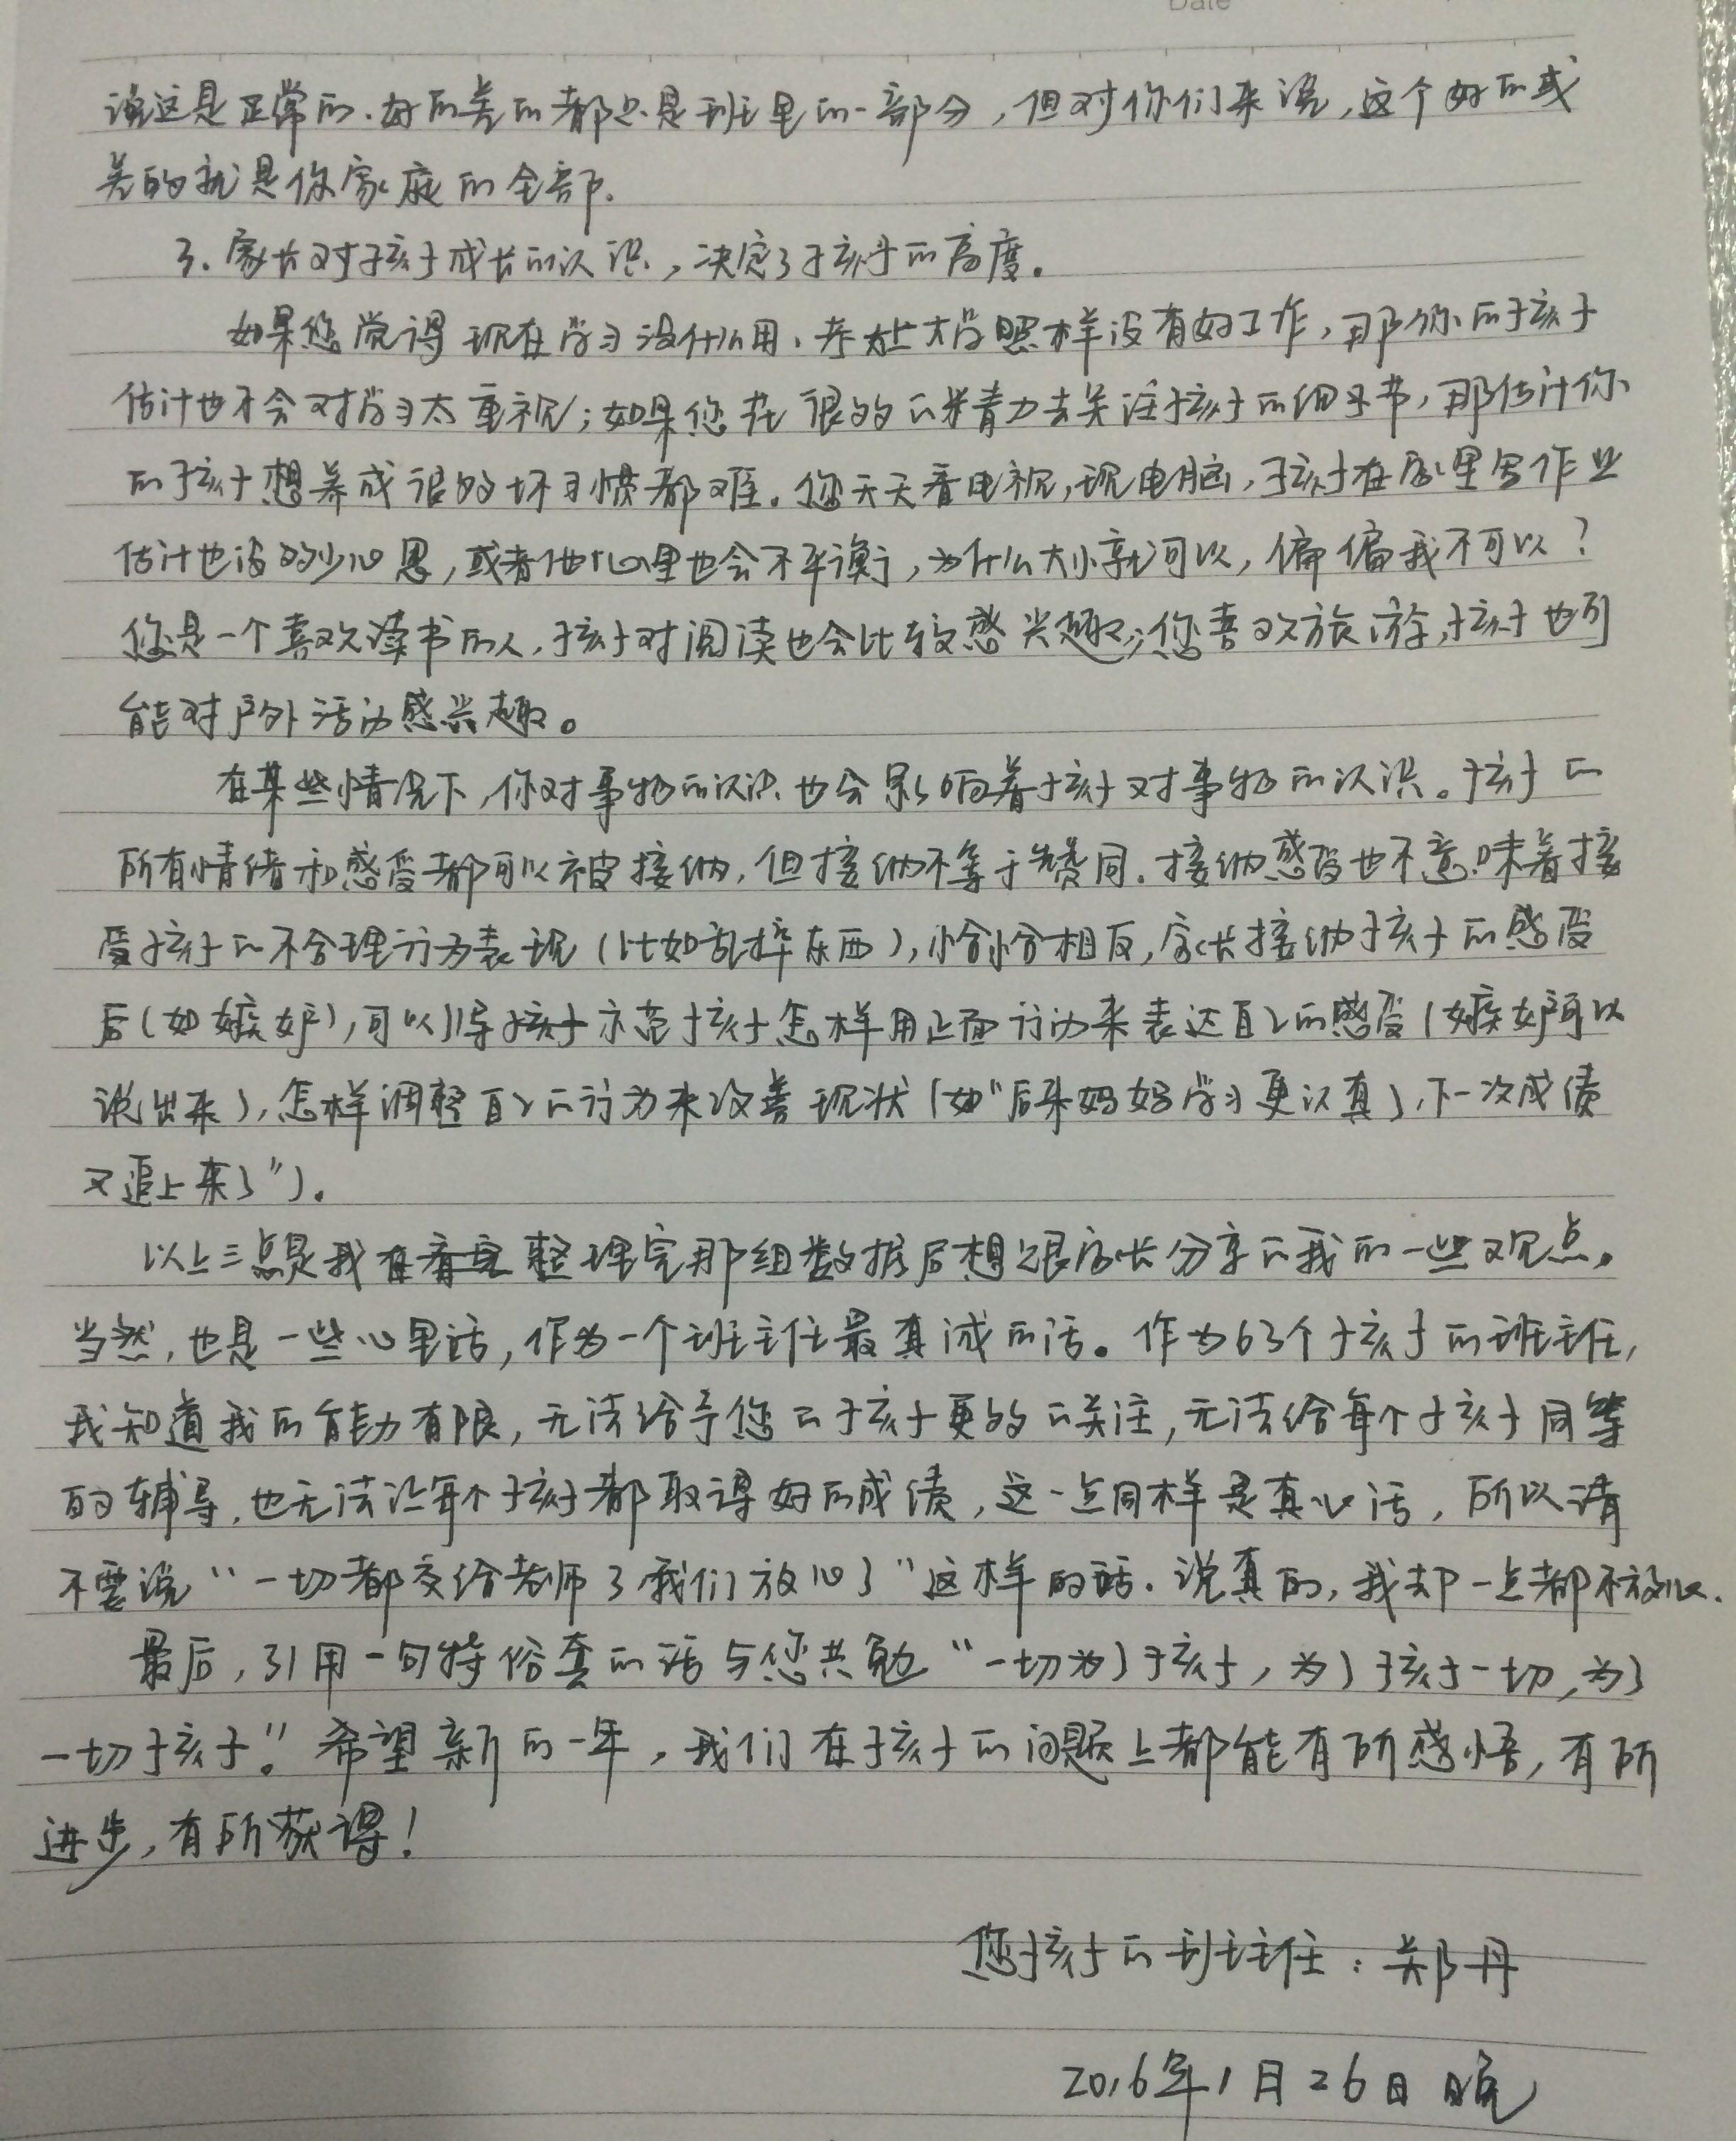 Date
说这是正常的.好的差的都只是班里的一部分,但对你们来说,这个好的或
差的就是你家庭的全部.
3.家长对孩子成长的认识,决定了孩子的高度。
如果您觉得现在学习没什么用、考上大学照样没有好工作,那你的孩子
估计也不会对学习太重视;如果您花很多的精力去关注孩子的细节,那估计你
的孩子想养成很多坏习惯都难。您天天看电视,玩电脑,孩子在家里写作业
估计也没多少心思,或者他心里也会不平衡,为什么大人就可以,偏偏我不可以?
您是一个喜欢读书的人,孩子对阅读也会比较感兴趣;您喜欢旅游,孩子也可
能对户外活动感兴趣。
在某些情况下,你对事物的认识也会影响着孩子对事物的认识。孩子的
所有情绪和感受都可以被接纳,但接纳不等于赞同.接纳感受也不意味着接
受孩子的不合理行为表现(比如乱摔东西),恰恰相反,家长接纳孩子的感受
后(如嫉妒),可以引导孩子示范孩子怎样用正面行为来表达自己的感受(嫉妒可以
说出来),怎样调整自己的行为来改善现状(如“后来妈妈学习更认真了,下一次成绩
又追上来了”)。
以上三点是我在看完整理完那组数据后想跟家长分享的我的一些观点。
当然,也是一些心里话,作为一个班主任最真诚的话。作为63个孩子的班主任,
我知道我的能力有限,无法给予您的孩子更多的关注,无法给每个孩子同等
的辅导,也无法让每个孩子都取得好的成绩,这一点同样是真心话,所以请
不要说“一切都交给老师了我们放心了”这样的话.说真的,我却一点都不放心.
最后,引用一句特俗套的话与您共勉“一切为了孩子,为了孩子一切,为了
一切孩子。”希望新的一年,我们在孩子的问题上都能有所感悟,有所
进步,有所获得!
您孩子的班主任:郑丹
2016年1月26日晚